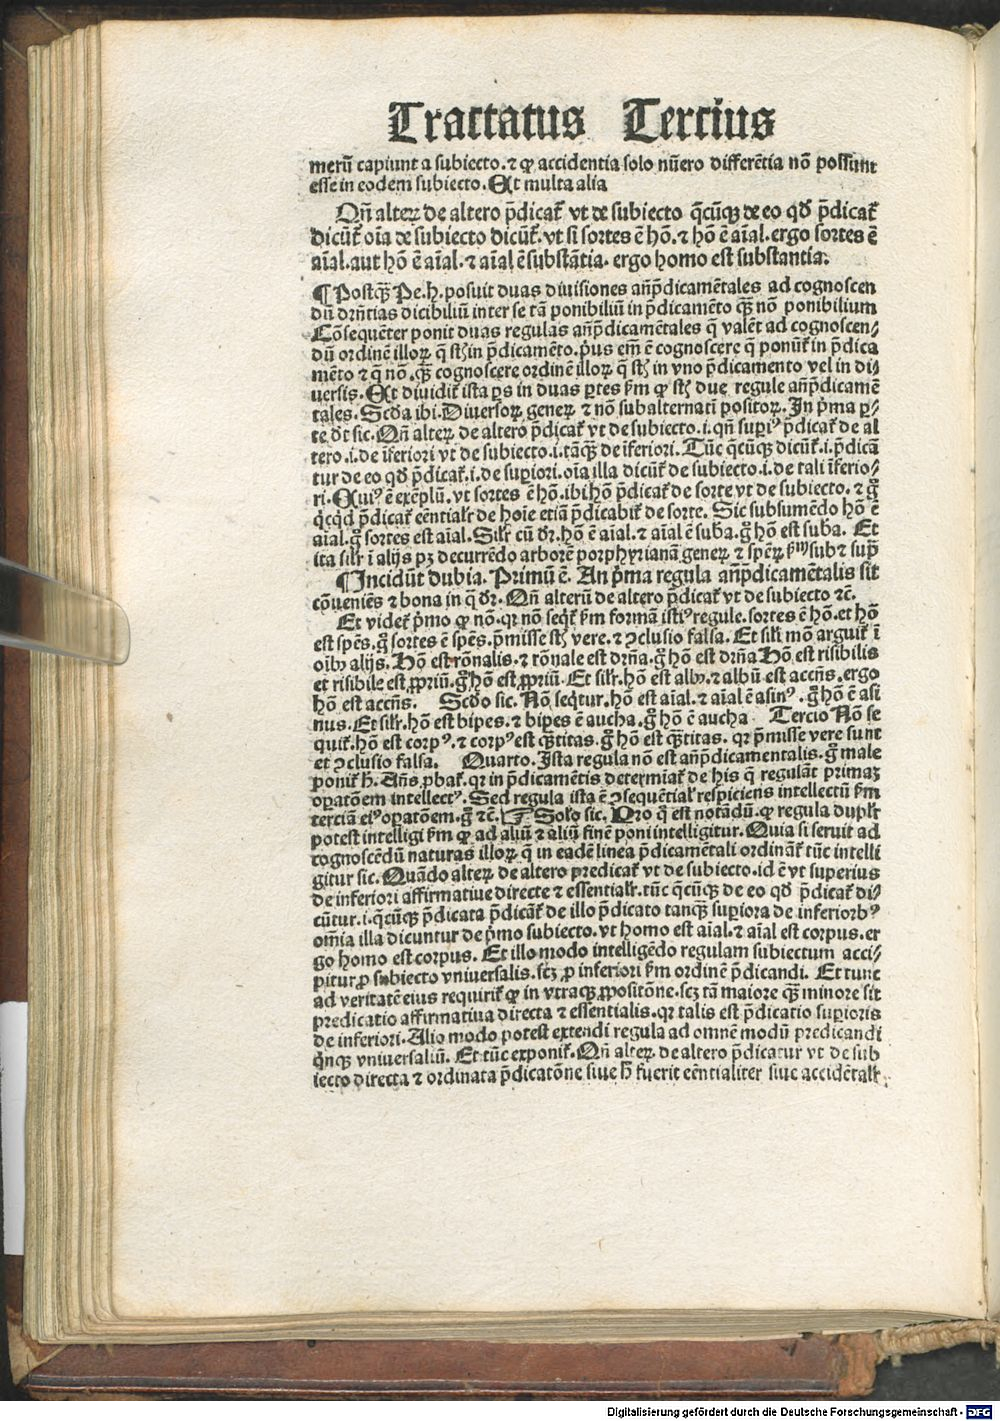 Tractatus Tercius
merū capiunt a subiecto. ⁊ ꝙ accidentia solo nūero differētia nō possunt
esse in eodem subiecto. Et multa alia
Qn̄ alteꝝ de altero p̄dicat᷑ vt de subiecto q̄cūqꝫ de eo qd̄ p̄dicat᷑
dicūt᷑ oīa de subiecto dicūt᷑. vt si sortes ē hō. ⁊ hō ē aīal. ergo sortes ē
aīal. aut hō ē aīal. ⁊ aīal ē substātia. ergo homo est substantia.
¶ Postqꝫ̄ Pe. h. posuit duas diuisiones an̄p̄dicamētales ad cognoscen
dū drn̄tias dicibiliū inter se tā ponibiliū in p̄dicamēto qꝫ̄ nō ponibilium
Cōsequēter ponit duas regulas an̄p̄dicamētales q̄ valēt ad cognoscen⸗
dū ordinē illoꝝ q̄ st̄ in p̄dicamēto. p̄us em̄ ē cognoscere q̄ ponūt᷑ in p̄dica
mēto ⁊ q̄ nō. qꝫ̄ cognoscere ordinē illoꝝ q̄ st̄ in vno p̄dicamento vel in di⸗
uersis. Et diuidit᷑ ista ꝑs in duas ꝑtes ẜm ꝙ st̄ due regule an̄p̄dicamē
tales. Scd̄a ibi. Diuersoꝝ geneꝝ ⁊ nō subalternati positoꝝ. In p̄ma ꝑ⸗
te dt̄ sic. Qn̄ alteꝝ de altero p̄dicat᷑ vt de subiecto. i. qn̄ suꝑiꝰ p̄dicat᷑ de al
tero. i. de īferiori vt de subiecto. i. tāqꝫ̄ de īferiori. Tūc q̄cūqꝫ dicūt᷑. i. p̄dicā
tur de eo qd̄ p̄dicat᷑. i. de suꝑiori. oīa illa dicūt᷑ de subiecto. i. de tali īferio⸗
ri. Cuiꝰ ē exēplū. vt sortes ē hō. ibi hō p̄dicat᷑ de sorte vt de subiecto. ⁊ g̊
q̇cq̇d p̄dicat᷑ eēntialr̄ de hoīe etiā p̄dicabit᷑ de sorte. Sic subsumēdo hō ē
aīal. g̊ sortes est aīal. Silr̄ cū dr̄. hō ē aīal. ⁊ aīal ē sub̄a. g̊ hō est sub̄a. Et
ita silr̄ ī alijs pꝫ decurrēdo arborē porphyrianā geneꝝ ⁊ sp̄eꝝ ẜm sub ⁊ supͣ
¶ Incidūt dubia. Primū ē. An p̄ma regula an̄p̄dicamētalis sit
cōueniēs ⁊ bona in q̄ dr̄. Qn̄ alterū de altero p̄dicat᷑ vt de subiecto ⁊c̄.
Et videt᷑ p̄mo ꝙ nō. qr nō seqt᷑ ẜm formā istiꝰ regule. sortes ē hō. et hō
est sp̄es. g̊ sortes ē sp̄es. p̄misse st̄ vere. ⁊ ꝯclusio falsa. Et sili mō arguit᷑ ī
oībꝰ alijs. Hō est rōnalis. ⁊ rōnale est drn̄a. g̊ hō est drn̄a Hō est risibilis
et risibile est ꝓpriū. g̊ hō est ꝓpriū. Et silr̄. hō est albꝰ. ⁊ albū est accn̄s. ergo
hō est accn̄s. Scd̄o sic. Nō seqtur. hō est aīal. ⁊ aīal ē asinꝰ. g̊ hō ē asi
nus. Et silr̄. hō est bipes. ⁊ bipes ē aucha. g̊ hō ē aucha Tercio Nō se
quit᷑. hō est corpꝰ. ⁊ corpꝰ est qꝫ̄titas. g̊ hō est qꝫ̄titas. qr p̄misse vere sunt
et ꝯclusio falsa. Quarto. Ista regula nō est an̄p̄dicamentalis. g̊ male
ponit᷑ h̄. An̄s ꝓbat᷑. qr in p̄dicamētis determiat᷑ de his q̄ regulāt primaꝫ
oꝑatōem intellectꝰ. Sed regula ista ē ꝯsequētialr̄ respiciens intellectū ẜm
terciā eiꝰ oꝑatōem. g̊ ⁊c̄. ☞ Solꝰo sic. Pro q̄ est notādū. ꝙ regula duplr̄
potest intelligi ẜm ꝙ ad aliū ⁊ aliū finē poni intelligitur. Quia si seruit ad
cognoscēdū naturas illoꝝ q̄ in eadē linea p̄dicamētali ordinat᷑ tūc intelli
gitur sic. Quādo alteꝝ de altero predicat᷑ vt de subiecto. id ē vt superius
de inferiori affirmatiue directe ⁊ essentialr̄. tūc q̄cūqꝫ de eo qd̄ p̄dicat᷑ di⸗
cūtur. i. q̄cūqꝫ p̄dicata p̄dicāt᷑ de illo p̄dicato tanqꝫ̄ suꝑiora de inferiorbꝰ
om̄ia illa dicuntur de p̄mo subiecto. vt homo est aīal. ⁊ aīal est corpus. er
go homo est corpus. Et illo modo intelligēdo regulam subiectum acci⸗
pitur ꝓ subiecto vniuersalis. scꝫ ꝓ inferiori ẜm ordinē p̄dicandi. Et tunc
ad veritatē eius requirit᷑ ꝙ in vtraqꝫ ꝓpositōne. scꝫ tā maiore qꝫ̄ minore sit
predicatio affirmatiua directa ⁊ essentialis. qr talis est p̄dicatio suꝑioris
de inferiori. Alio modo potest extendi regula ad omnē modū predicandi
q̇nqꝫ vniuersaliū. Et tūc exponit᷑. Qn̄ alteꝝ de altero p̄dicatur vt de sub
iecto directa ⁊ ordinata p̄dicatōne siue h̄ fuerit eēntialiter siue accidētalr̄
Digitalisierung gefördert durch die Deutsche Forschungsgemeinschaft - DFG